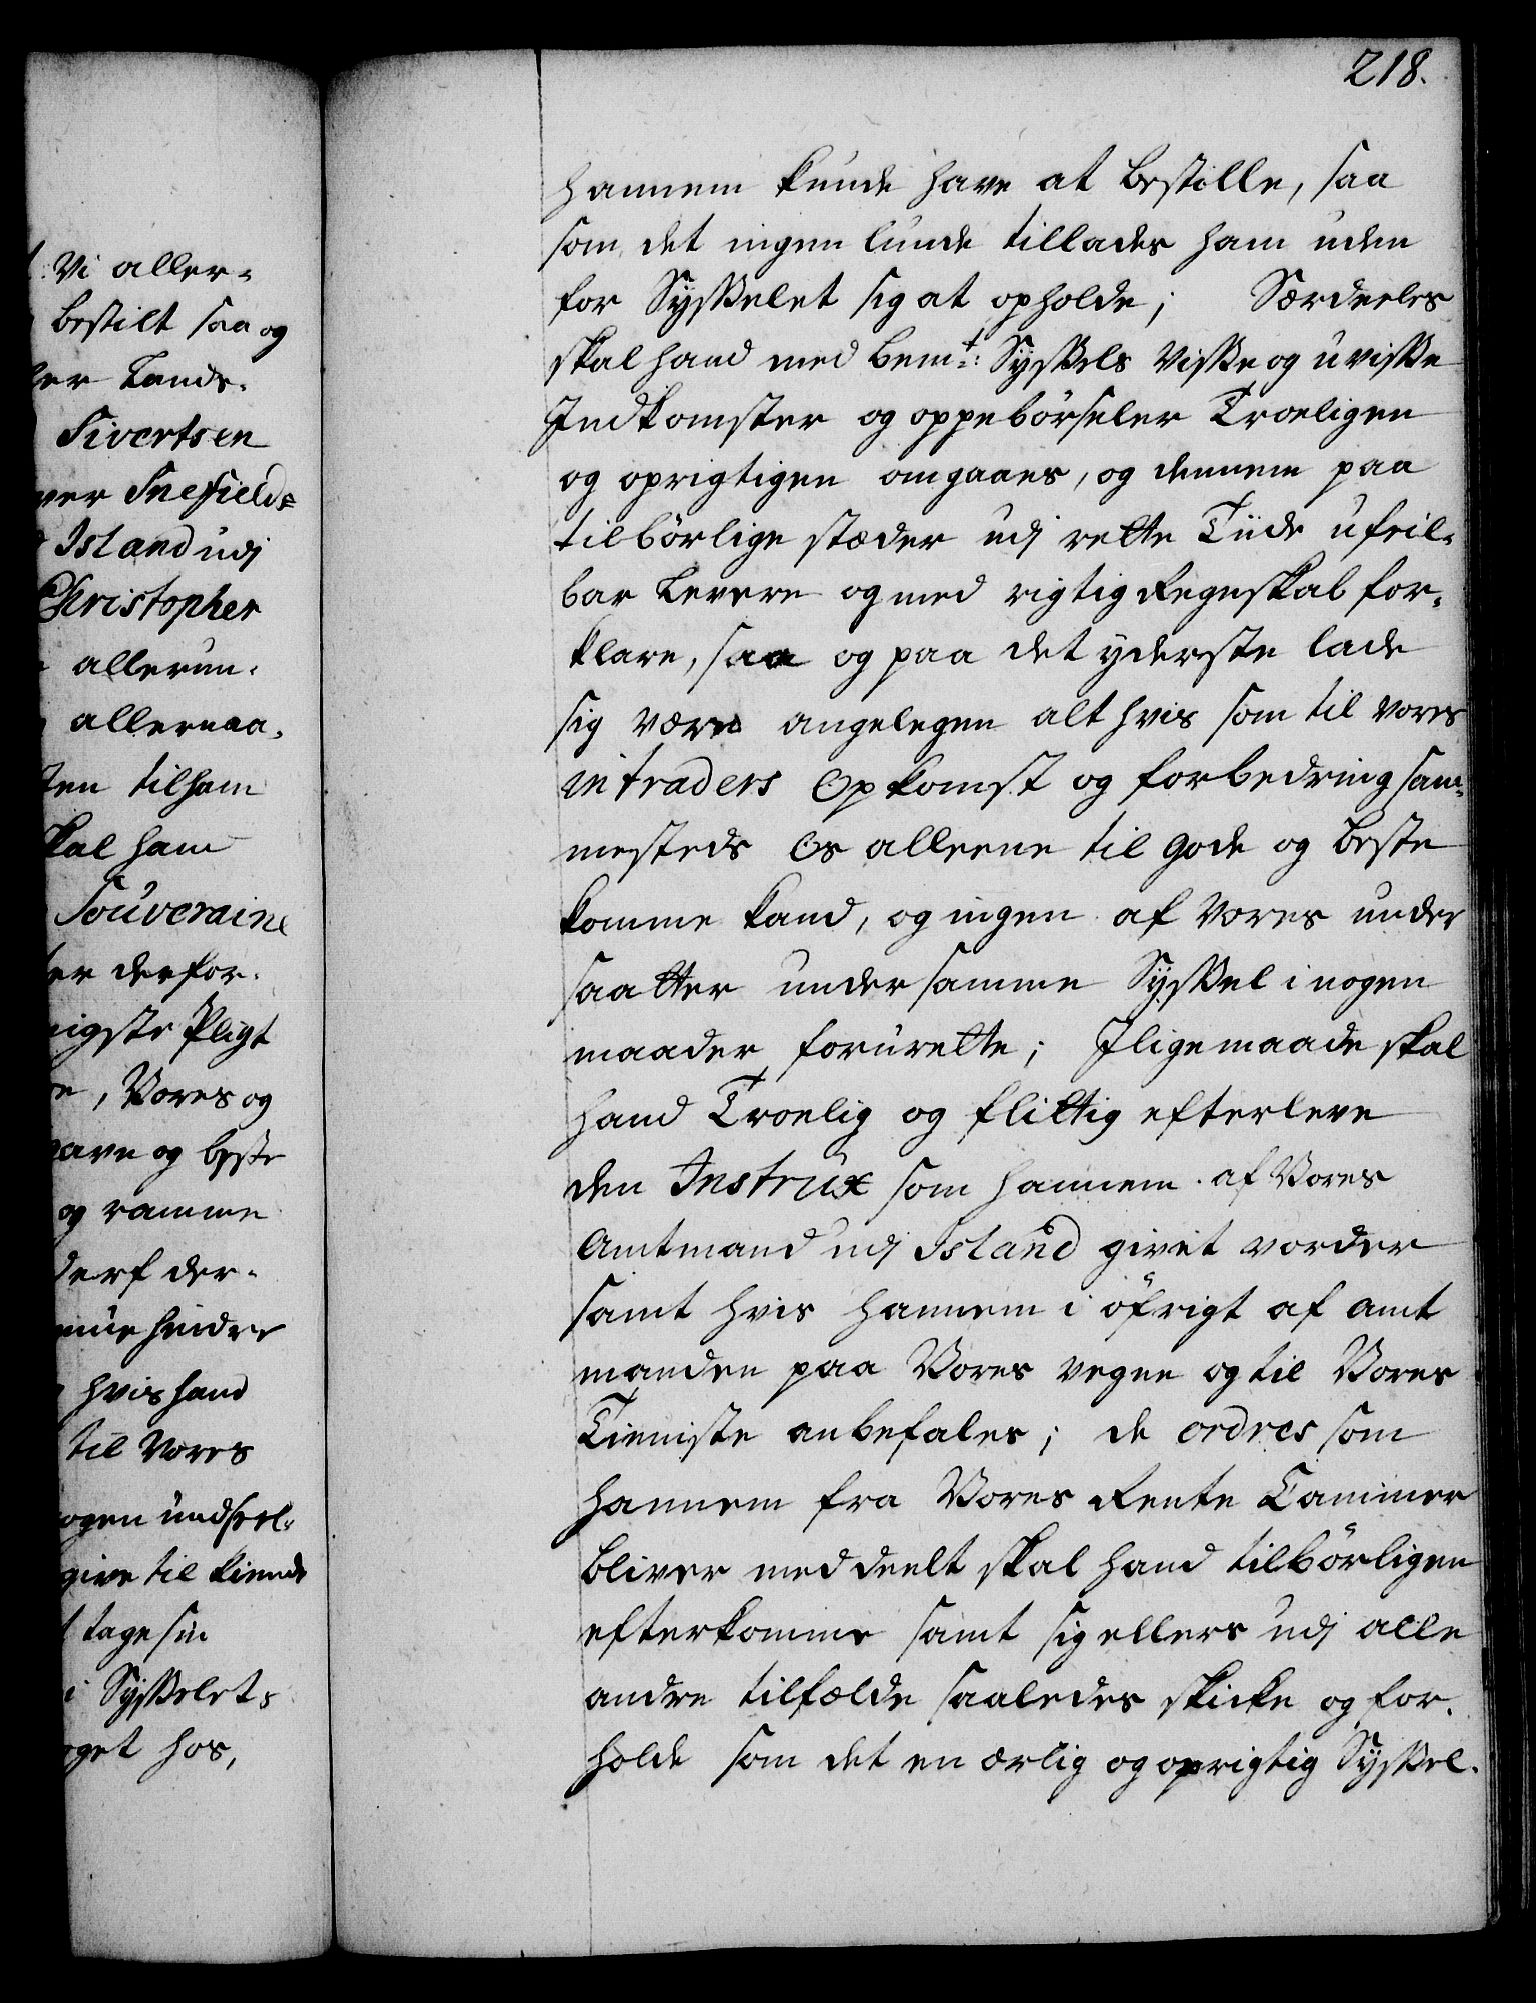 : Vi aller-
bestilt saa og
ver Lands-
Sivertsen
ver Snefields-
Island udj
Christopher
allerun-
allernaa-
ten til ham
skal ham
Souveraine
er derfor-
nigste Pligt
, Vores og
gavn og beste
og ramme
derf der-
hindre
hvis hand
til Vores
ogen undseel-
give til kiende
tage sin
i Sysselets
get hos,
218.
hannem kunde have at bestille, saa
som det ingenlunde tillades ham uden
for Sysselet sig at opholde; Særdeeles
skal hand med bemt: Syssels Visse og uvisse
Indkomster og oppebörseler Troeligen
og oprigtigen omgaaes, og dennem paa
tilbörlige stæder udj rette Tiide ufeil-
bar Levere og med rigtig Regnskab for-
klare, saa og paa det yderste lade
sig være angelegen alt hvis som til vores
intraders Opkomst og forbedring sam-
mesteds Os alleene til gode og beste
komme kand, og ingen af Vores under
saatter under samme Syssel i nogen
maader forurette; Iligemaade skal
hand Troelig og flittig efterleve
den Instrux som hannem af Vores
Amtmand udj Island givet vorder
samt hvis hannem i öfrigt af amt
manden paa Vores vegne og til Vores
Tieniste anbefales; de ordres som
hannem fra Vores Rente Cammer
bliver meddeelt skal hand tilbörligen
efterkomme samt sig ellers udj alle
andre tilfælde saaledes skicke og for-
holde som det en ærlig og oprigtig Syssel-